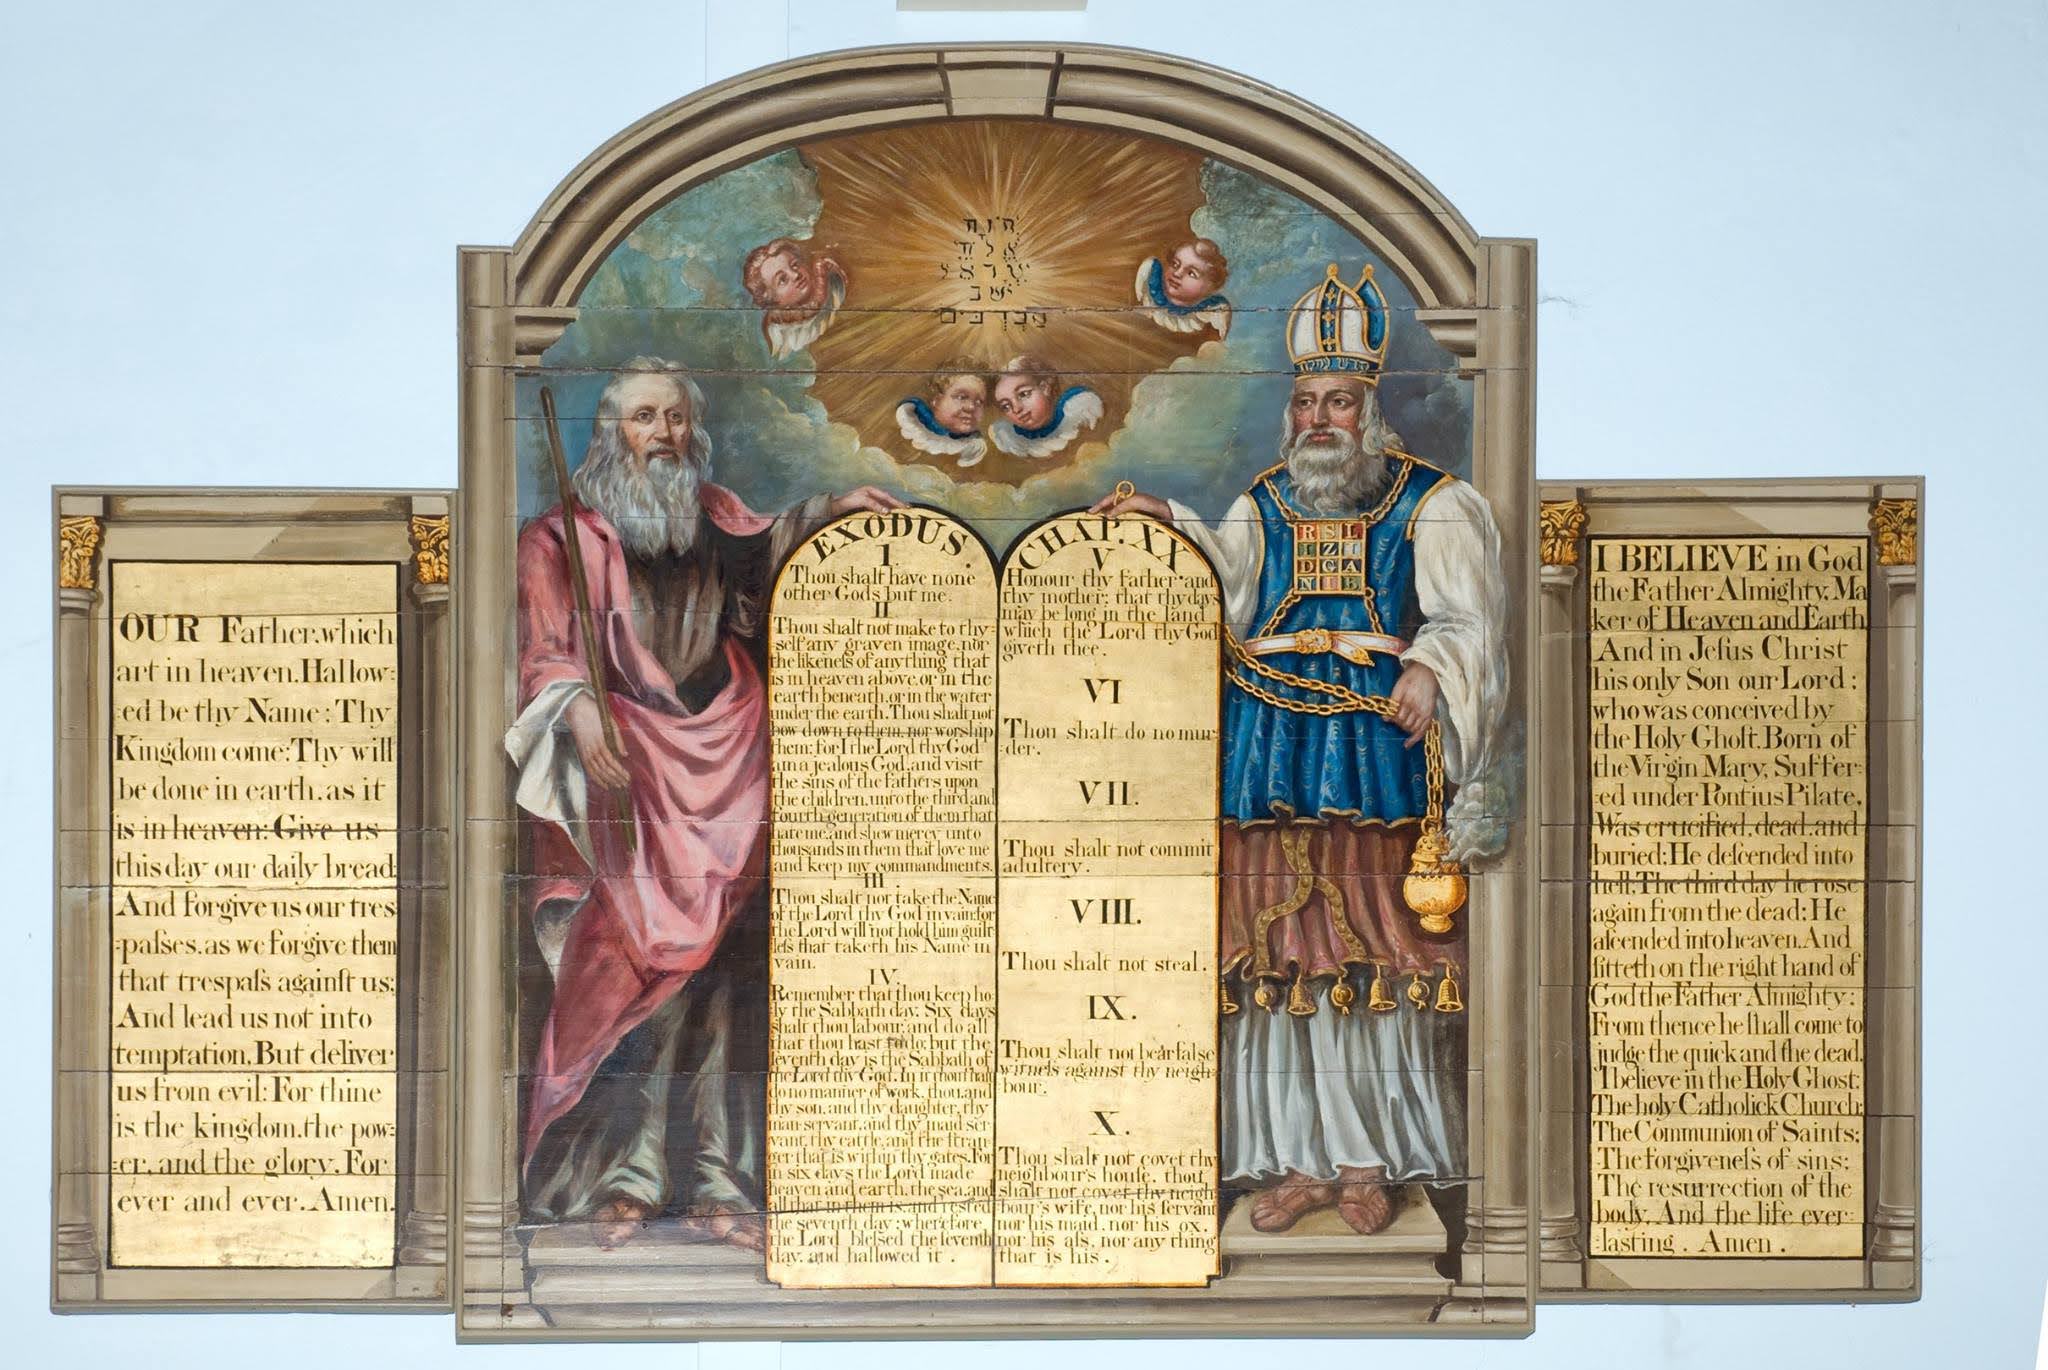 OUR Father, which
art in heaven. Hallow=
=ed be thy Name: Thy
Kingdom come: Thy will
be done in earth, as it
is in heaven: Give us
this day our daily bread:
And forgive us our tres
=paſses, as we forgive them
that trespaſs againſt us:
And lead us not into
temptation, But deliver
us from evil: For thine
is the kingdom, the pow=
=er, and the glory, For
ever and ever. Amen.
ישב
EXODUS.
I.
Thou shalt have none
other Gods but me.
II
Thou shalt not make to thy=
=self any graven image, nor
the likeneſs of anything that
is in heaven above, or in the
earth beneath, or in the water
under the earth. Thou shalt not
bow down to them, nor worship
them: for I the Lord thy God
am a jealous God, and visit
the sins of the fathers upon
the children, unto the third and
fourth generation of them that
hate me, and shew mercy unto
thousands in them that love me
and keep my commandments.
III.
Thou shalt not take the Name
of the Lord thy God in vain: for
the Lord will not hold him guilt
leſs that taketh his Name in
vain.
IV.
Remember that thou keep ho=
=ly the Sabbath day. Six days
shalt thou labour, and do all
that thou hast to do; but the
ſeventh day is the Sabbath of
the Lord thy God. In it thou ſhalt
do no manner of work, thou, and
thy son, and thy daughter, thy
man-servant, and thy maid ser=
vant, thy cattle, and the ſtran=
ger that is within thy gates. For
in six days the Lord made
heaven and earth, the sea, and
all that in them is, and rested
the seventh day; wherefore,
the Lord bleſsed the ſeventh
day, and hallowed it.
CHAP. XX
V
Honour thy father and
thy mother; that thy days
may be long in the land
which the Lord thy God
giveth thee.
VI
Thou shalt do no mur=
=der.
VII.
Thou shalt not commit
adultery.
VIII.
Thou shalt not steal.
IX.
Thou shalt not bear falſe
witneſs against thy neigh=
bour.
X.
Thou shalt not covet thy
neighbour's houſe, thou
shalt not covet thy neigh=
bour's wife, nor his ſervant
nor his maid, nor his ox,
nor his aſs, nor any thing
that is his.
R S L
I Z I
D G A
N I B
I BELIEVE in God
the Father Almighty, Ma
ker of Heaven and Earth
And in Jeſus Christ
his only Son our Lord;
who was conceived by
the Holy Ghoſt, Born of
the Virgin Mary, Suffer=
=ed under Pontius Pilate,
Was crucified, dead, and
buried: He deſcended into
hell; The third day he roſe
again from the dead: He
aſcended into heaven, And
ſitteth on the right hand of
God the Father Almighty:
From thence he ſhall come to
judge the quick and the dead.
I believe in the Holy Ghost:
The holy Catholick Church;
The Communion of Saints;
The forgiveneſs of sins;
The resurrection of the
body, And the life ever=
=lasting. Amen.